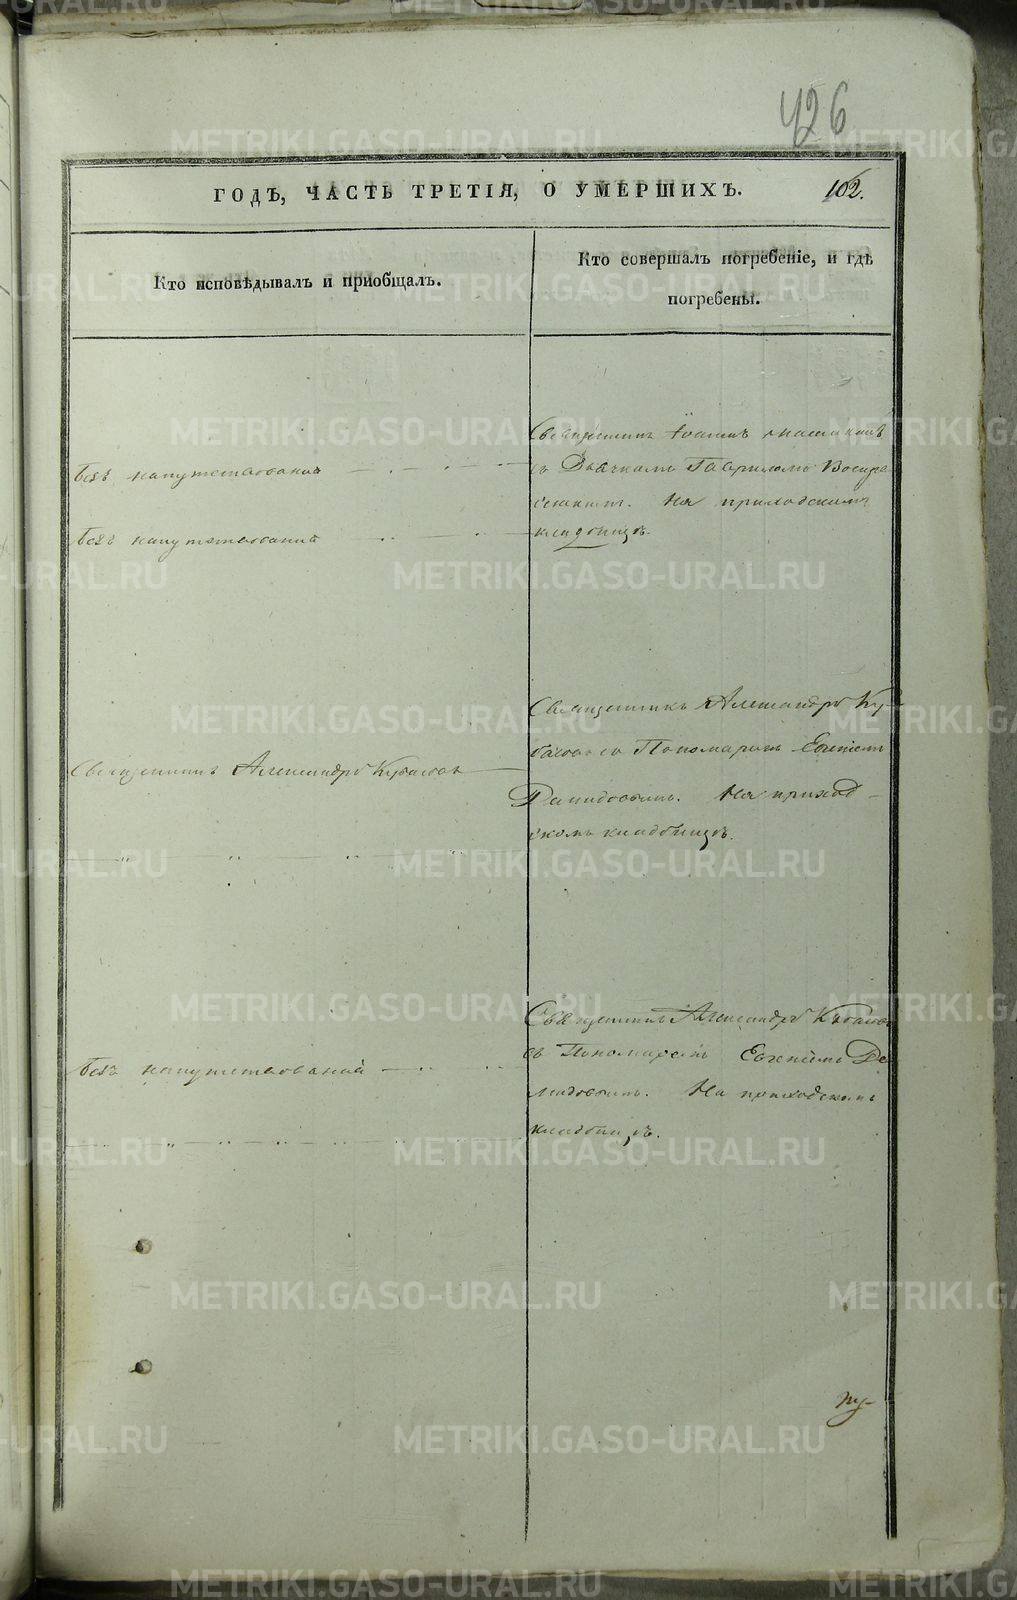 426
ГОДЪ, ЧАСТЬ ТРЕТІЯ, О УМЕРШИХЪ. 102.
Кто исповѣдывалъ и пріобщалъ.
Кто совершалъ погребеніе, и гдѣ
погребены.
Безъ напутствованія
Безъ напутствованія
Священникъ Іоаннъ
съ Дьячкомъ Гавриломъ Воскре
сенскимъ. На приходскомъ
кладбищѣ.
Священникъ Александръ Кубасовъ
Священникъ Александръ Ку
басовъ съ Пономаремъ Евгеніемъ
Демидовымъ. На приход
скомъ кладбищѣ.
Безъ напутствованія
Священникъ Александръ Кубасовъ
съ Пономаремъ Евгеніемъ Де
мидовымъ. На приходскомъ
кладбищѣ.
METRIKI.GASO-URAL.RU